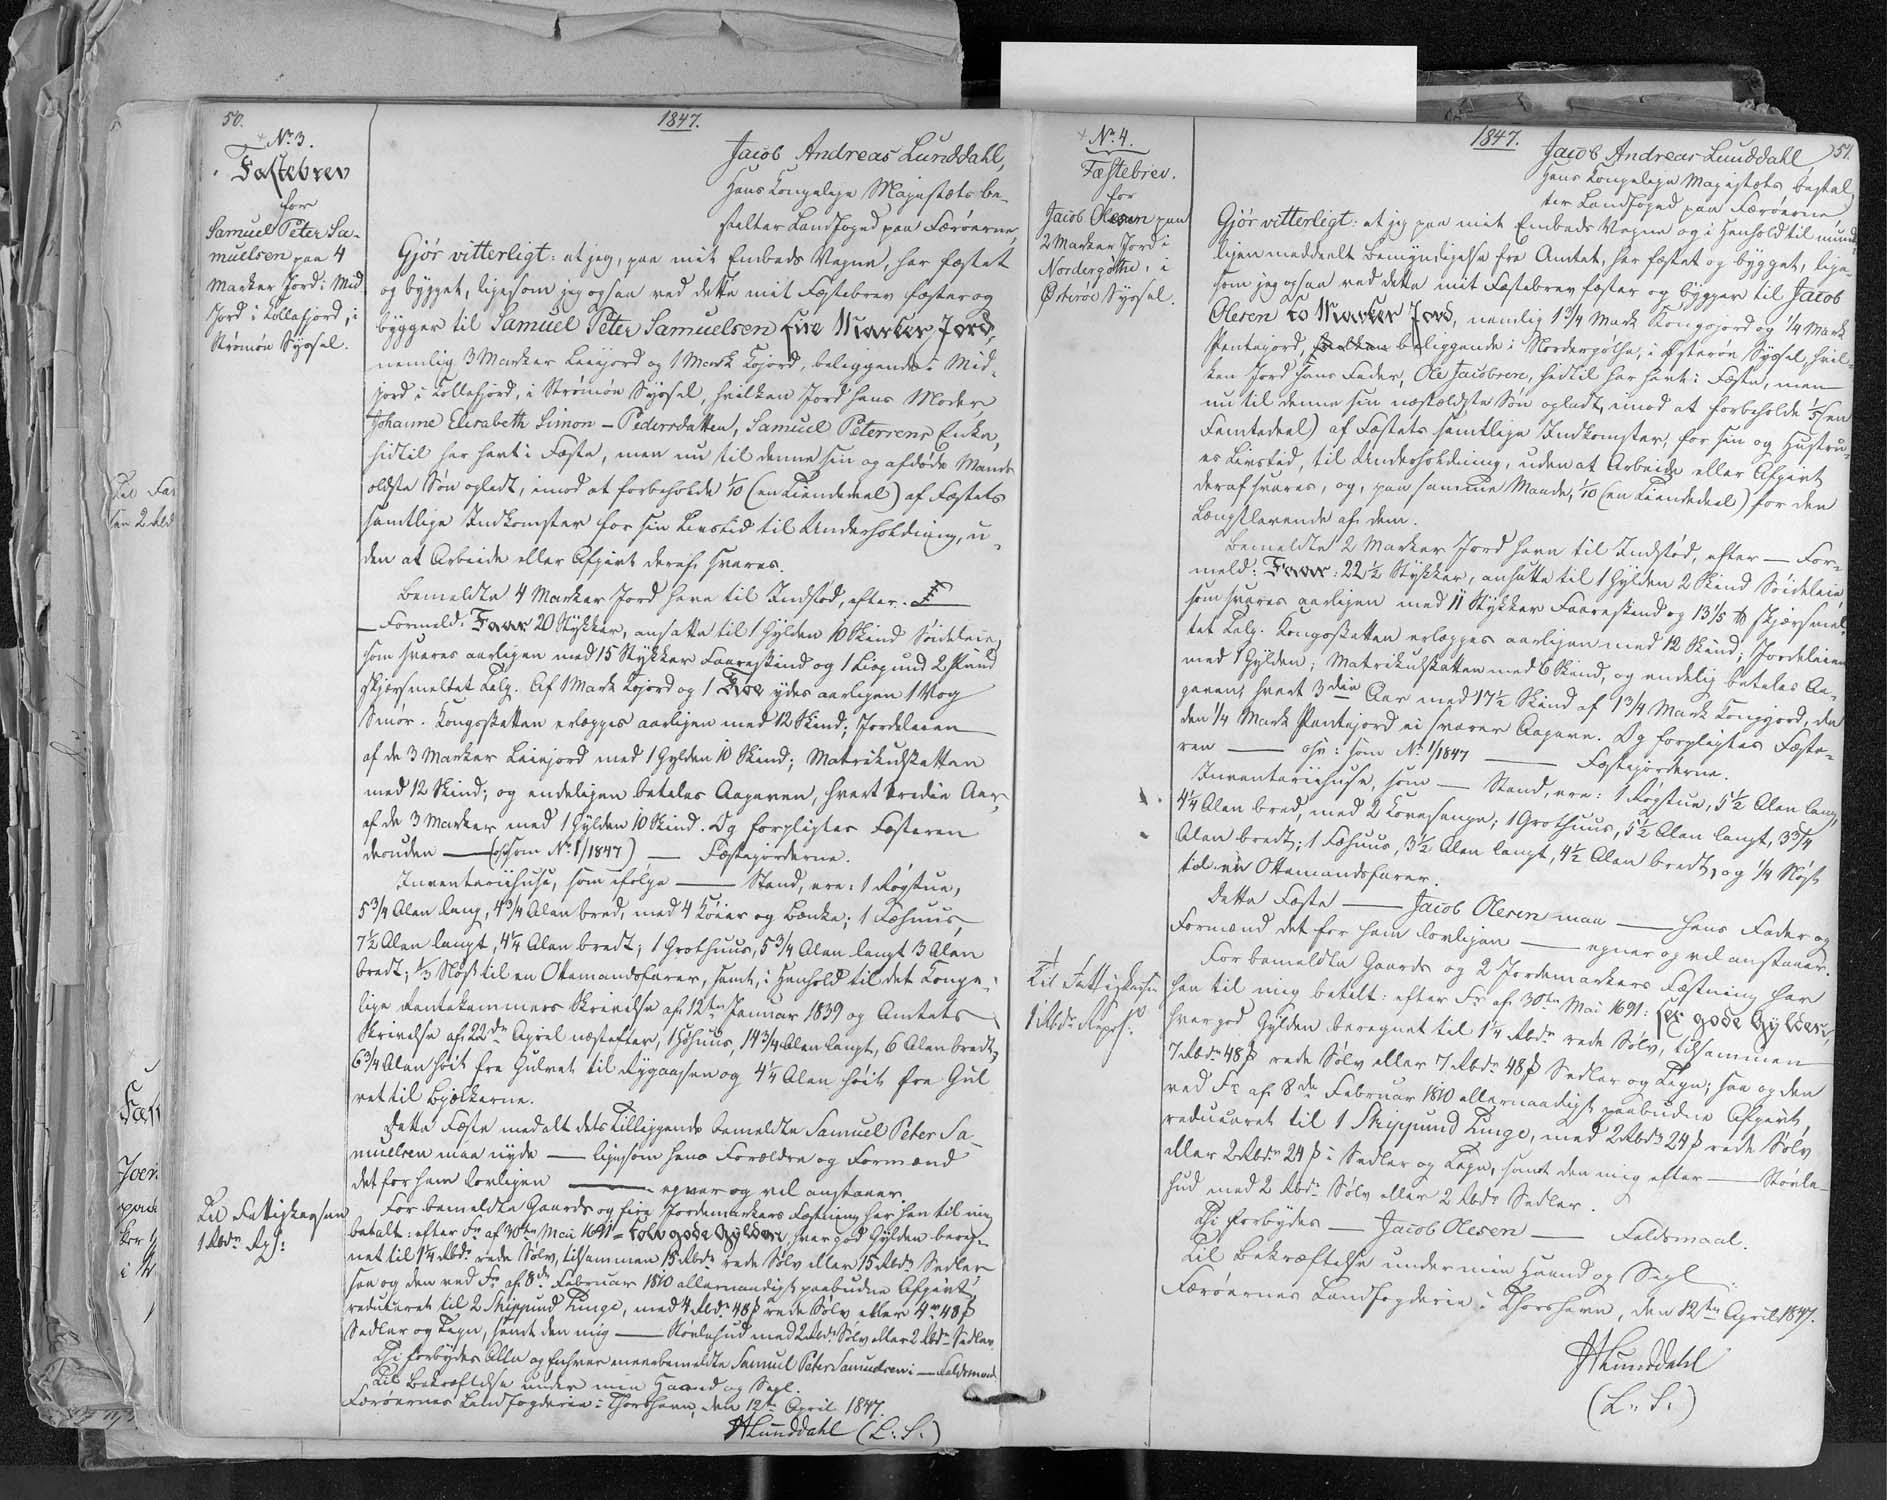 50.
1847.
No 3.
Fæstebrev
for
Samuel Peter Sa-
muelsen paa 4
Marker Jord i Mid
Jord i Kollefjord, i
Strømøe Syssel.
Jacob Andreas Lunddahl,
Hans Kongelige Majestæts be-
stalter Landfoged paa Færøerne,
Gjør vitterligt: at jeg, paa mit Embeds Vegne, har fæstet
og bygget, ligesom jeg ogsaa ved dette mit Fæstebrev fæster og
bygger til Samuel Peter Samuelsen fire Marker Jord,
nemlig 3 Marker Leiejord og 1 Mark Kojord, beliggende i Mid-
jord i Kollefjord, i Strømøe Syssel, hvilken Jord hans Moder
Johanne Elisabeth Simon-Pedersdatter, Samuel Petersens Enke,
hidtil har havt i Fæste, men nu til denne sin og afdøde Mands
ældste Søn opladt, imod at forbeholde 1/10 (en Tiendedeel) af Fæstets
samtlige Indkomster for sin Livstid til Underholdning, u-
den at Arbeide eller Afgivt deraf svares.
Bemeldte 4 Marker Jord have til Indstød, efter
— Formeld: Faar 20 Stykker, ansatte til 1 Gylden 10 Skind Søideleie,
som svares aarligen med 15 Stykker Faareskind og 1 Lispund 2 Pund
skjærsmeltet Talg. Af 1 Mark Kojord og 1 Koe ydes aarligen 1 Vog
Smør. Kongsskatten erlægges aarligen med 12 Skind; Jordeleien
af de 3 Marker Leiejord med 1 Gylden 10 Skind; Matrikulskatten
med 12 Skind; og endeligen betales Aagaven, hvert tredie Aar,
af de 3 Marker med 1 Gylden 10 Skind. Og forpligtes Fæsteren
desuden — (som No 1/1847) — Fæstegjorderne.
Inventariihuse, som ifølge — Stand, ere: 1 Røgstue,
5 3/4 Alen lang, 4 3/4 Alen bred, med 4 Køier og Bænke; 1 Fæhuus,
7 1/2 Alen langt, 4 1/4 Alen bredt; 1 Grothuus, 5 3/4 Alen langt 3 Alen
bredt; 1/3 Nøst til en Ottemandsfarer, samt, i Henhold til det Konge-
lige Rentekammers Skrivelse af 12te Januar 1839 og Amtets
Skrivelse af 22de April næstefter, 1 Høhuus, 14 3/4 Alen langt, 6 Alen bredt,
6 3/4 Alen høit fra Gulvet til Rygaasen og 4 1/4 Alen høit fra Gul
vet til Bjælkerne.
Dette Fæste med alt dets Tilliggende bemeldte Samuel Peter Sa-
muelsen maa nyde — ligesom hans Forældre og Formænd
det for ham lovligen — egner og vel anstaaer.
For bemeldte Gaards og fire Jordemarkers Fæstning har han til mig
betalt: efter Fr. af 30te Mai 1691 = tolv gode Gylden, hver god Gylden bereg-
net til 1 1/4 Rbdr. rede Sølv, tilsammen 15 Rbdr. rede Sølv eller 15 Rbdr. Sedler
saa og den ved Fr. af 8de Februar 1810 allernaadigst paabudne Afgivt,
reduceret til 2 Skippund Tunge, med 4 Rbd. 48 β rede Sølv eller 4 " 48 β
Sedler og Tegn, samt den mig — Støvlehud med 2 Rbdr. Sølv eller 2 Rbdr. Sedler
Thi forbydes Alle og Enhver meerbemeldte Samuel Peter Samuelsen i — Faldsmaal.
Til Bekræftelse under min Haand og Segl.
Færøernes Landfogderie i Thorshavn, den 12te April 1847.
JALunddahl (L. S.)
Til Fattigkassen
1 Rbdr. Rp S:
No 4.
Fæstebrev.
for
Jacob Olesen paa
2 Marker Jord i
Nordergøthe, i
Østerøe Syssel.
1847.
51.
Jacob Andreas Lunddahl,
Hans Kongelige Majestæts bestal
ter Landfoged paa Færøerne
Gjør vitterligt: at jeg paa mit Embeds Vegne og i Henhold til mundt-
ligen meddeelt Bemyndigelse fra Amtet, har fæstet og bygget, lige-
som jeg ogsaa ved dette mit Fæstebrev fæster og bygger til Jacob
Olesen to Marker Jord, nemlig 1 3/4 Mark Kongsjord og 1/4 Mark
Pantejord, beliggende i Nordergøthe, i Østerøe Syssel, hvil-
ken Jord hans Fader, Ole Jacobsen, hidtil har havt i Fæste, men
nu til denne sin næstældste Søn opladt, imod at forbeholde 1/5 (en
Femtedeel) af Fæstets samtlige Indkomster, for sin og Hustru-
es Livstid, til Underholdning, uden at Arbeide eller Afgivt
deraf svares, og, paa samme Maade, 1/10 (en Tiendedeel) for den
Længstlevende af dem.
Bemeldte 2 Marker Jord have til Indstød, efter — For-
meld: Faar: 22 1/2 Stykker, ansatte til 1 Gylden 2 Skind Søideleie,
som svares aarligen med 11 Stykker Faareskind og 13 1/5 ℔ skjærsmel-
tet Talg. Kongsskatten erlægges aarligen med 12 Skind; Jordeleien
med 1 Gylden; Matrikulskatten med 6 Skind, og endelig betales Aa-
gaven, hvert 3die Aar med 17 1/2 Skind af 1 3/4 Mark Kongsjord, da
den 1/4 Mark Pantejord ei svarer Aagave. Og forpligtes Fæste-
ren — osv: som No 1/1847 — Fæstegjorderne.
Inventariihuse, som — Stand, ere: 1 Røgstue, 5 1/2 Alen lang,
4 1/4 Alen bred, med 2 Kovesenge; 1 Grothuus, 5 1/2 Alen langt, 3 3/4
Alen bredt; 1 Fæhuus, 3 1/2 Alen langt, 4 1/2 Alen bredt, og 1/4 Nøst
til en Ottemandsfarer.
Dette Fæste — Jacob Olesen maa — hans Fader og
Formænd det for ham lovligen — egner og vel anstaaer.
For bemeldte Gaards og 2 Jordemarkers Fæstning har
han til mig betalt: efter Fr. af 30te Mai 1691: sex gode Gylden,
hver god Gylden beregnet til 1 1/4 Rbdr. rede Sølv, tilsammen
7 Rbdr. 48 β rede Sølv eller 7 Rbdr. 48 β Sedler og Tegn; saa og den
ved Fr. af 8de Februar 1810 allernaadigst paabudne Afgivt,
reduceret til 1 Skippund Tunge, med 2 Rbdr. 24 β rede Sølv
eller 2 Rbdr. 24 β i Sedler og Tegn, samt den mig efter — Støvle-
hud med 2 Rbdr. Sølv eller 2 Rbdr. Sedler.
Thi forbydes — Jacob Olesen — Faldsmaal.
Til Bekræftelse under min Haand og Segl.
Færøernes Landfogderie i Thorshavn, den 12te April 1847.
JALunddahl
(L. S.)
Til Fattigkassen
1 Rbdr.